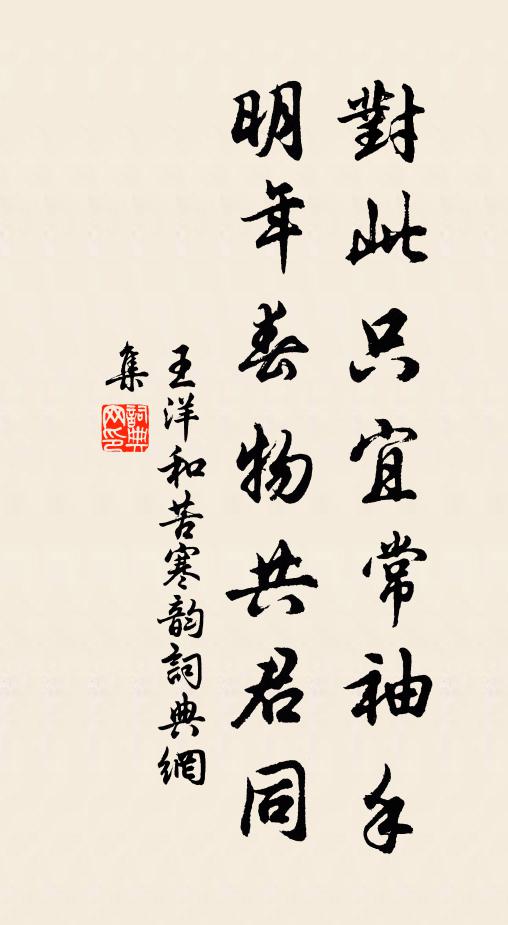 對此只宜常袖手
明年春物共君同
王洋和苦寒韵詞典網
集
詞典网印